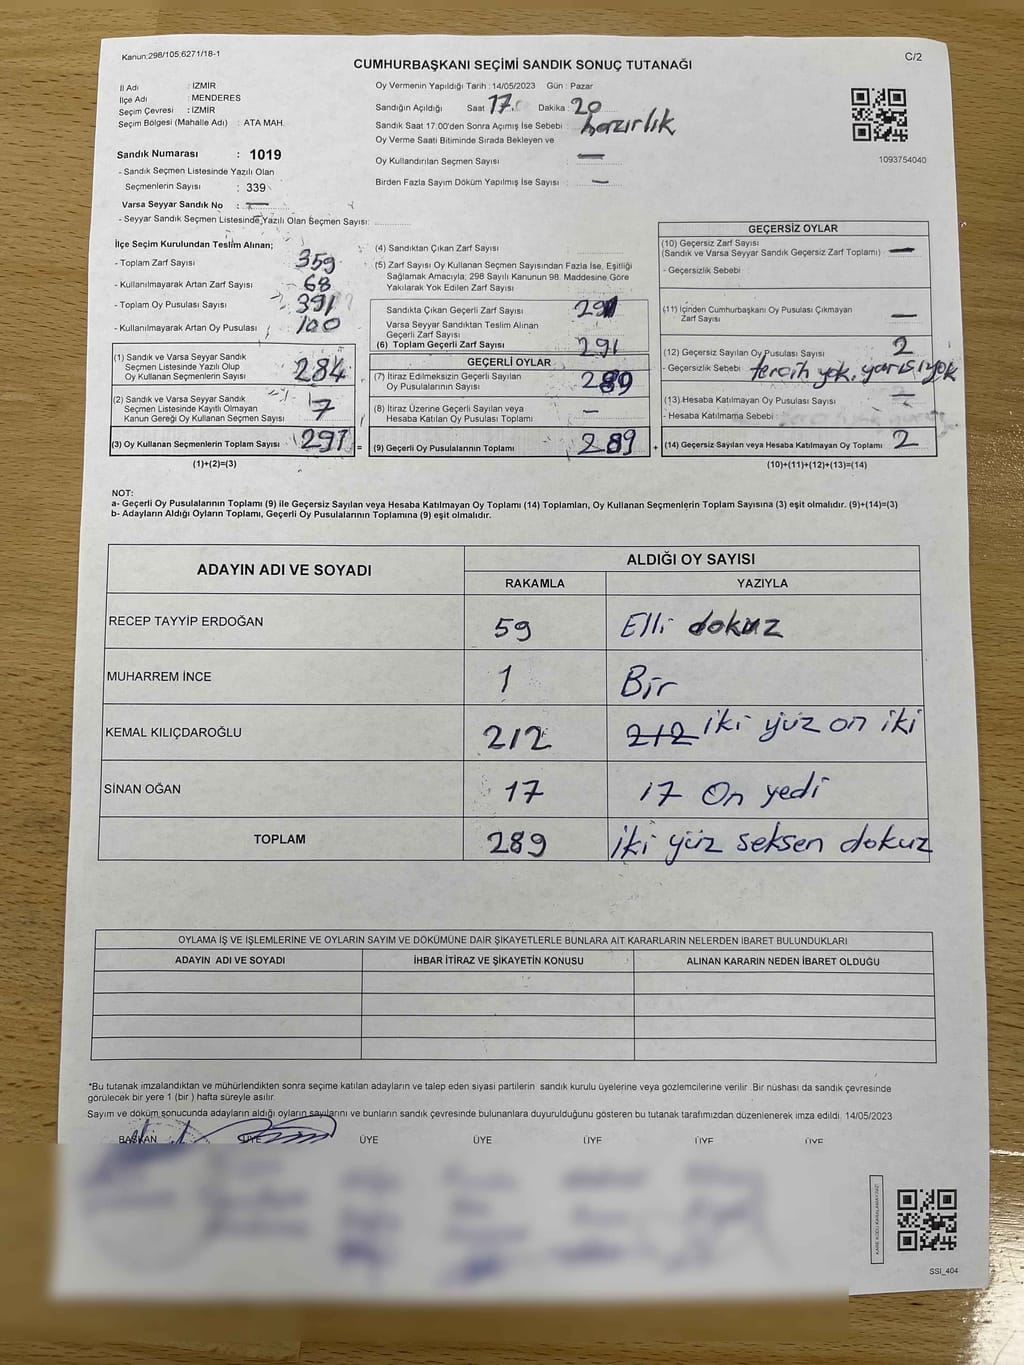 Kanun;298/105;6271/18-1
C/2
CUMHURBAŞKANI SEÇİMİ SANDIK SONUÇ TUTANAĞI
İl Adı : İZMİR
İlçe Adı : MENDERES
Seçim Çevresi : İZMİR
Seçim Bölgesi (Mahalle Adı) : ATA MAH.
Sandık Numarası : 1019
- Sandık Seçmen Listesinde Yazılı Olan
Seçmenlerin Sayısı : 339
Varsa Seyyar Sandık No : —
- Seyyar Sandık Seçmen Listesinde Yazılı Olan Seçmen Sayısı:
Oy Vermenin Yapıldığı Tarih : 14/05/2023 Gün : Pazar
Sandığın Açıldığı Saat 17 Dakika : 20
Sandık Saat 17.00'den Sonra Açılmış İse Sebebi : hazırlık
Oy Verme Saati Bitiminde Sırada Bekleyen ve
Oy Kullandırılan Seçmen Sayısı : —
Birden Fazla Sayım Döküm Yapılmış İse Sayısı : —
1093754040
İlçe Seçim Kurulundan Teslim Alınan;
- Toplam Zarf Sayısı 359
- Kullanılmayarak Artan Zarf Sayısı 68
- Toplam Oy Pusulası Sayısı 391
- Kullanılmayarak Artan Oy Pusulası 100
(1) Sandık ve Varsa Seyyar Sandık
Seçmen Listesinde Yazılı Olup
Oy Kullanan Seçmenlerin Sayısı 284
(2) Sandık ve Varsa Seyyar Sandık
Seçmen Listesinde Kayıtlı Olmayan
Kanun Gereği Oy Kullanan Seçmen Sayısı 7
(3) Oy Kullanan Seçmenlerin Toplam Sayısı 291
(1)+(2)=(3)
(4) Sandıktan Çıkan Zarf Sayısı
(5) Zarf Sayısı Oy Kullanan Seçmen Sayısından Fazla İse, Eşitliği
Sağlamak Amacıyla; 298 Sayılı Kanunun 98. Maddesine Göre
Yakılarak Yok Edilen Zarf Sayısı
Sandıkta Çıkan Geçerli Zarf Sayısı 291
Varsa Seyyar Sandıktan Teslim Alınan
Geçerli Zarf Sayısı
(6) Toplam Geçerli Zarf Sayısı 291
GEÇERLİ OYLAR
(7) İtiraz Edilmeksizin Geçerli Sayılan
Oy Pusulalarının Sayısı 289
(8) İtiraz Üzerine Geçerli Sayılan veya
Hesaba Katılan Oy Pusulaları Toplamı —
(9) Geçerli Oy Pusulalarının Toplamı 289
GEÇERSİZ OYLAR
(10) Geçersiz Zarf Sayısı
(Sandık ve Varsa Seyyar Sandık Geçersiz Zarf Toplamı) —
- Geçersizlik Sebebi
(11) İçinden Cumhurbaşkanı Oy Pusulası Çıkmayan
Zarf Sayısı —
(12) Geçersiz Sayılan Oy Pusulası Sayısı 2
- Geçersizlik Sebebi tercih yok, yarısı yok
(13) Hesaba Katılmayan Oy Pusulası Sayısı —
- Hesaba Katılmama Sebebi
(14) Geçersiz Sayılan veya Hesaba Katılmayan Oy Toplamı 2
(10)+(11)+(12)+(13)=(14)
NOT:
a- Geçerli Oy Pusulalarının Toplamı (9) ile Geçersiz Sayılan veya Hesaba Katılmayan Oy Toplamı (14) Toplamları, Oy Kullanan Seçmenlerin Toplam Sayısına (3) eşit olmalıdır. (9)+(14)=(3)
b- Adayların Aldığı Oyların Toplamı, Geçerli Oy Pusulalarının Toplamına (9) eşit olmalıdır.
ADAYIN ADI VE SOYADI ALDIĞI OY SAYISI
RAKAMLA YAZIYLA
RECEP TAYYİP ERDOĞAN 59 Elli dokuz
MUHARREM İNCE 1 Bir
KEMAL KILIÇDAROĞLU 212 212 iki yüz on iki
SİNAN OĞAN 17 17 On yedi
TOPLAM 289 iki yüz seksen dokuz
OYLAMA İŞ VE İŞLEMLERİNE VE OYLARIN SAYIM VE DÖKÜMÜNE DAİR ŞİKAYETLERLE BUNLARA AİT KARARLARIN NELERDEN İBARET BULUNDUKLARI
ADAYIN ADI VE SOYADI İHBAR İTİRAZ VE ŞİKAYETİN KONUSU ALINAN KARARIN NEDEN İBARET OLDUĞU
*Bu tutanak imzalandıktan ve mühürlendikten sonra seçime katılan adayların ve talep eden siyasi partilerin sandık kurulu üyelerine veya gözlemcilerine verilir. Bir nüshası da sandık çevresinde
görülecek bir yere 1 (bir ) hafta süreyle asılır.
Sayım ve döküm sonucunda adayların aldığı oyların sayılarını ve bunların sandık çevresinde bulunanlara duyurulduğunu gösteren bu tutanak tarafımızdan düzenlenerek imza edildi. 14/05/2023
BAŞKAN ÜYE ÜYE ÜYE ÜYE ÜYE ÜYE
KARE KODU KARALAMAYINIZ!
SSI_404